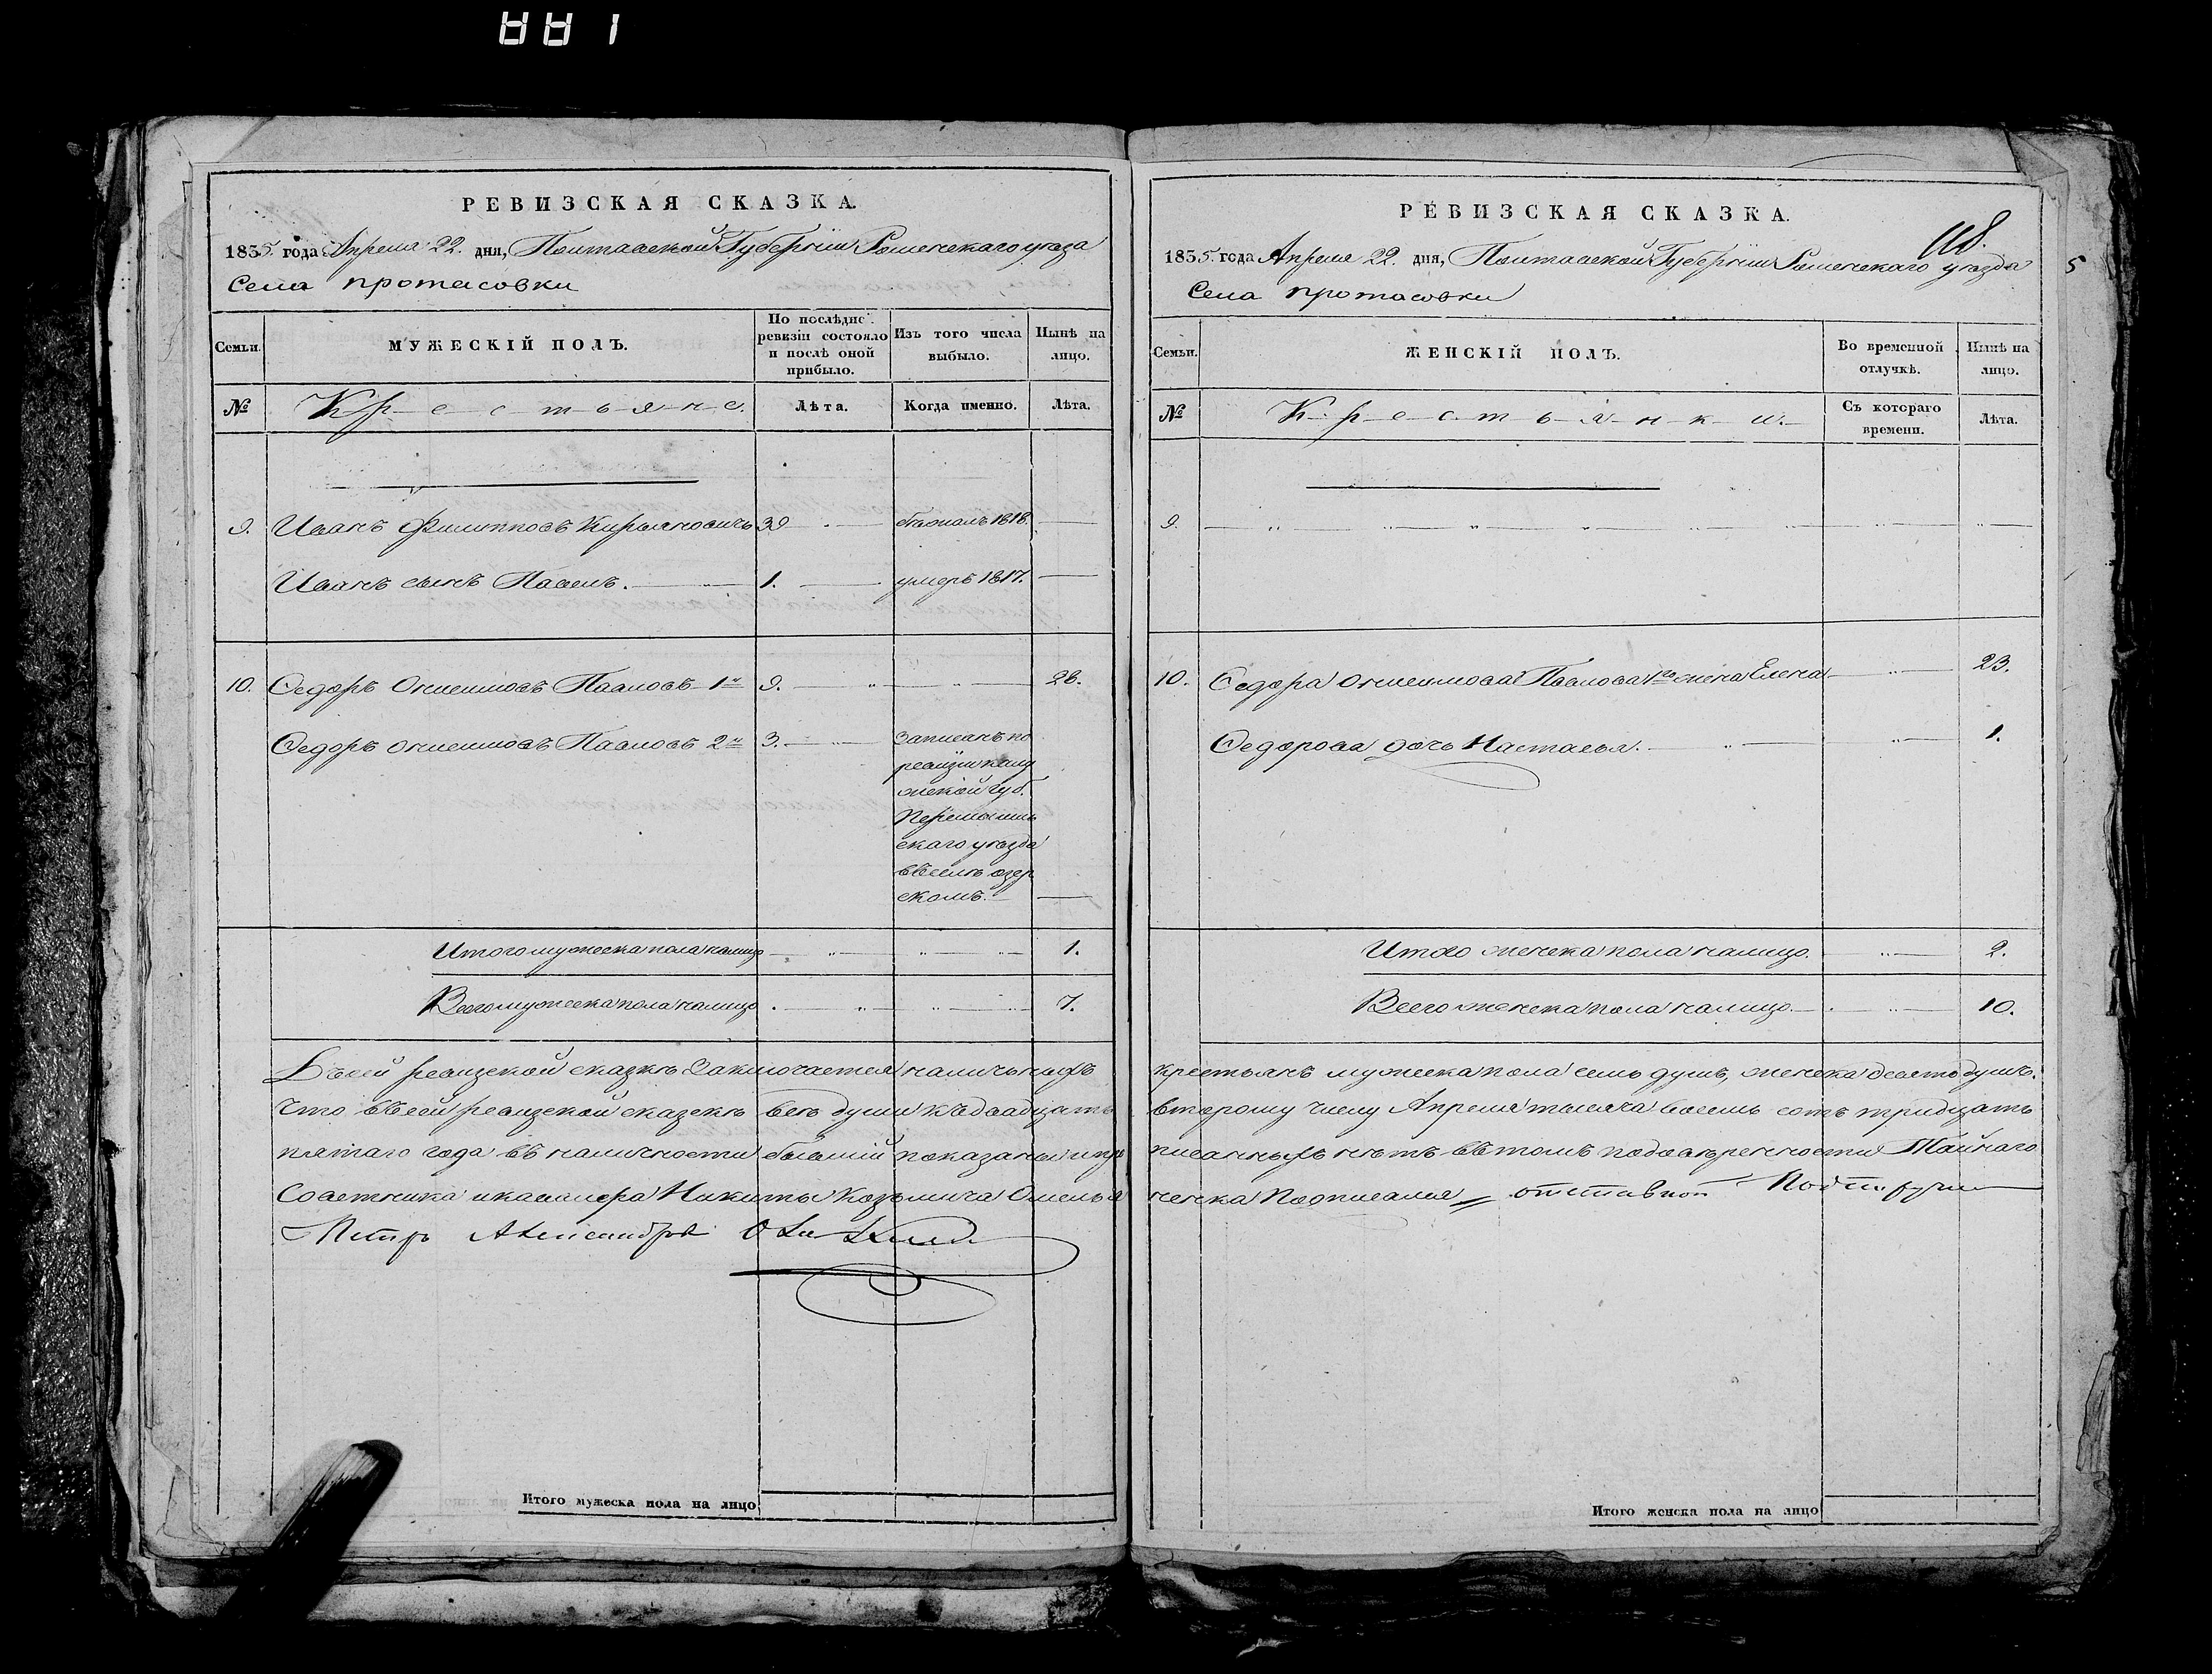 РЕВИЗСКАЯ СКАЗКА.
1835. года Апреля 22. дня, Полтавской Губернiи Роменскаго уезда
Села протасовки
Семьи.
МУЖЕСКІЙ ПОЛЪ.
По послѣдне ревизіи состояло и послѣ оной прибыло.
Изъ того числа выбыло.
Нынѣ на лицо.
№
Крестьяне.
Лѣта.
Когда именно.
Лѣта.
9. Иванъ Филипповъ Кирьяновичь 39 бежалъ 1818.
Иванъ сынъ Павелъ. 1. умеръ 1817.
10. Федоръ Онисимовъ Павловъ 1й 9. 28.
Федоръ Онисимовъ Павловъ 2й 3. Записанъ по
ревизiи калу
жской губ.
Перемышль
скаго уезда
въ селе озер
скомъ.
Итого мужеска пола налицо 1.
Всего мужеска пола налицо 7.
Въ сей ревизской сказке Заключается наличныхъ
что въ сей ревизской сказске все души къ двадцать
пятаго года въ наличности бывшiй показаны и про
Советника и кавалера Никиты Козьмича Омелья
Петръ Александровъ
Итого мужеска пола на лицо
881
РЕВИЗСКАЯ СКАЗКА.
118.
1835. года Апреля 22. дня, Полтавской Губернiи Роменскаго уезда
5
Села протасовки
Семьи.
ЖЕНСКІЙ ПОЛЪ.
Во временной отлучкѣ.
Нынѣ на лицо.
№
Крестьянки.
Съ котораго времени.
Лѣта.
9.
10. Федора Онисимова Павлова 1го жена Елена 23.
Федорова дочь Настасья. 1.
Итого женска пола налицо. 2.
Всего женска пола налицо. 10.
крестьянъ мужеска пола семь душъ, женска десять душъ.
второму числу Апреля тысяча восемь сотъ тридцать
писанныхъ нетъ въ томъ по доверенности Тайнаго
ненка Подписалъ отставной
Итого женска пола на лицо